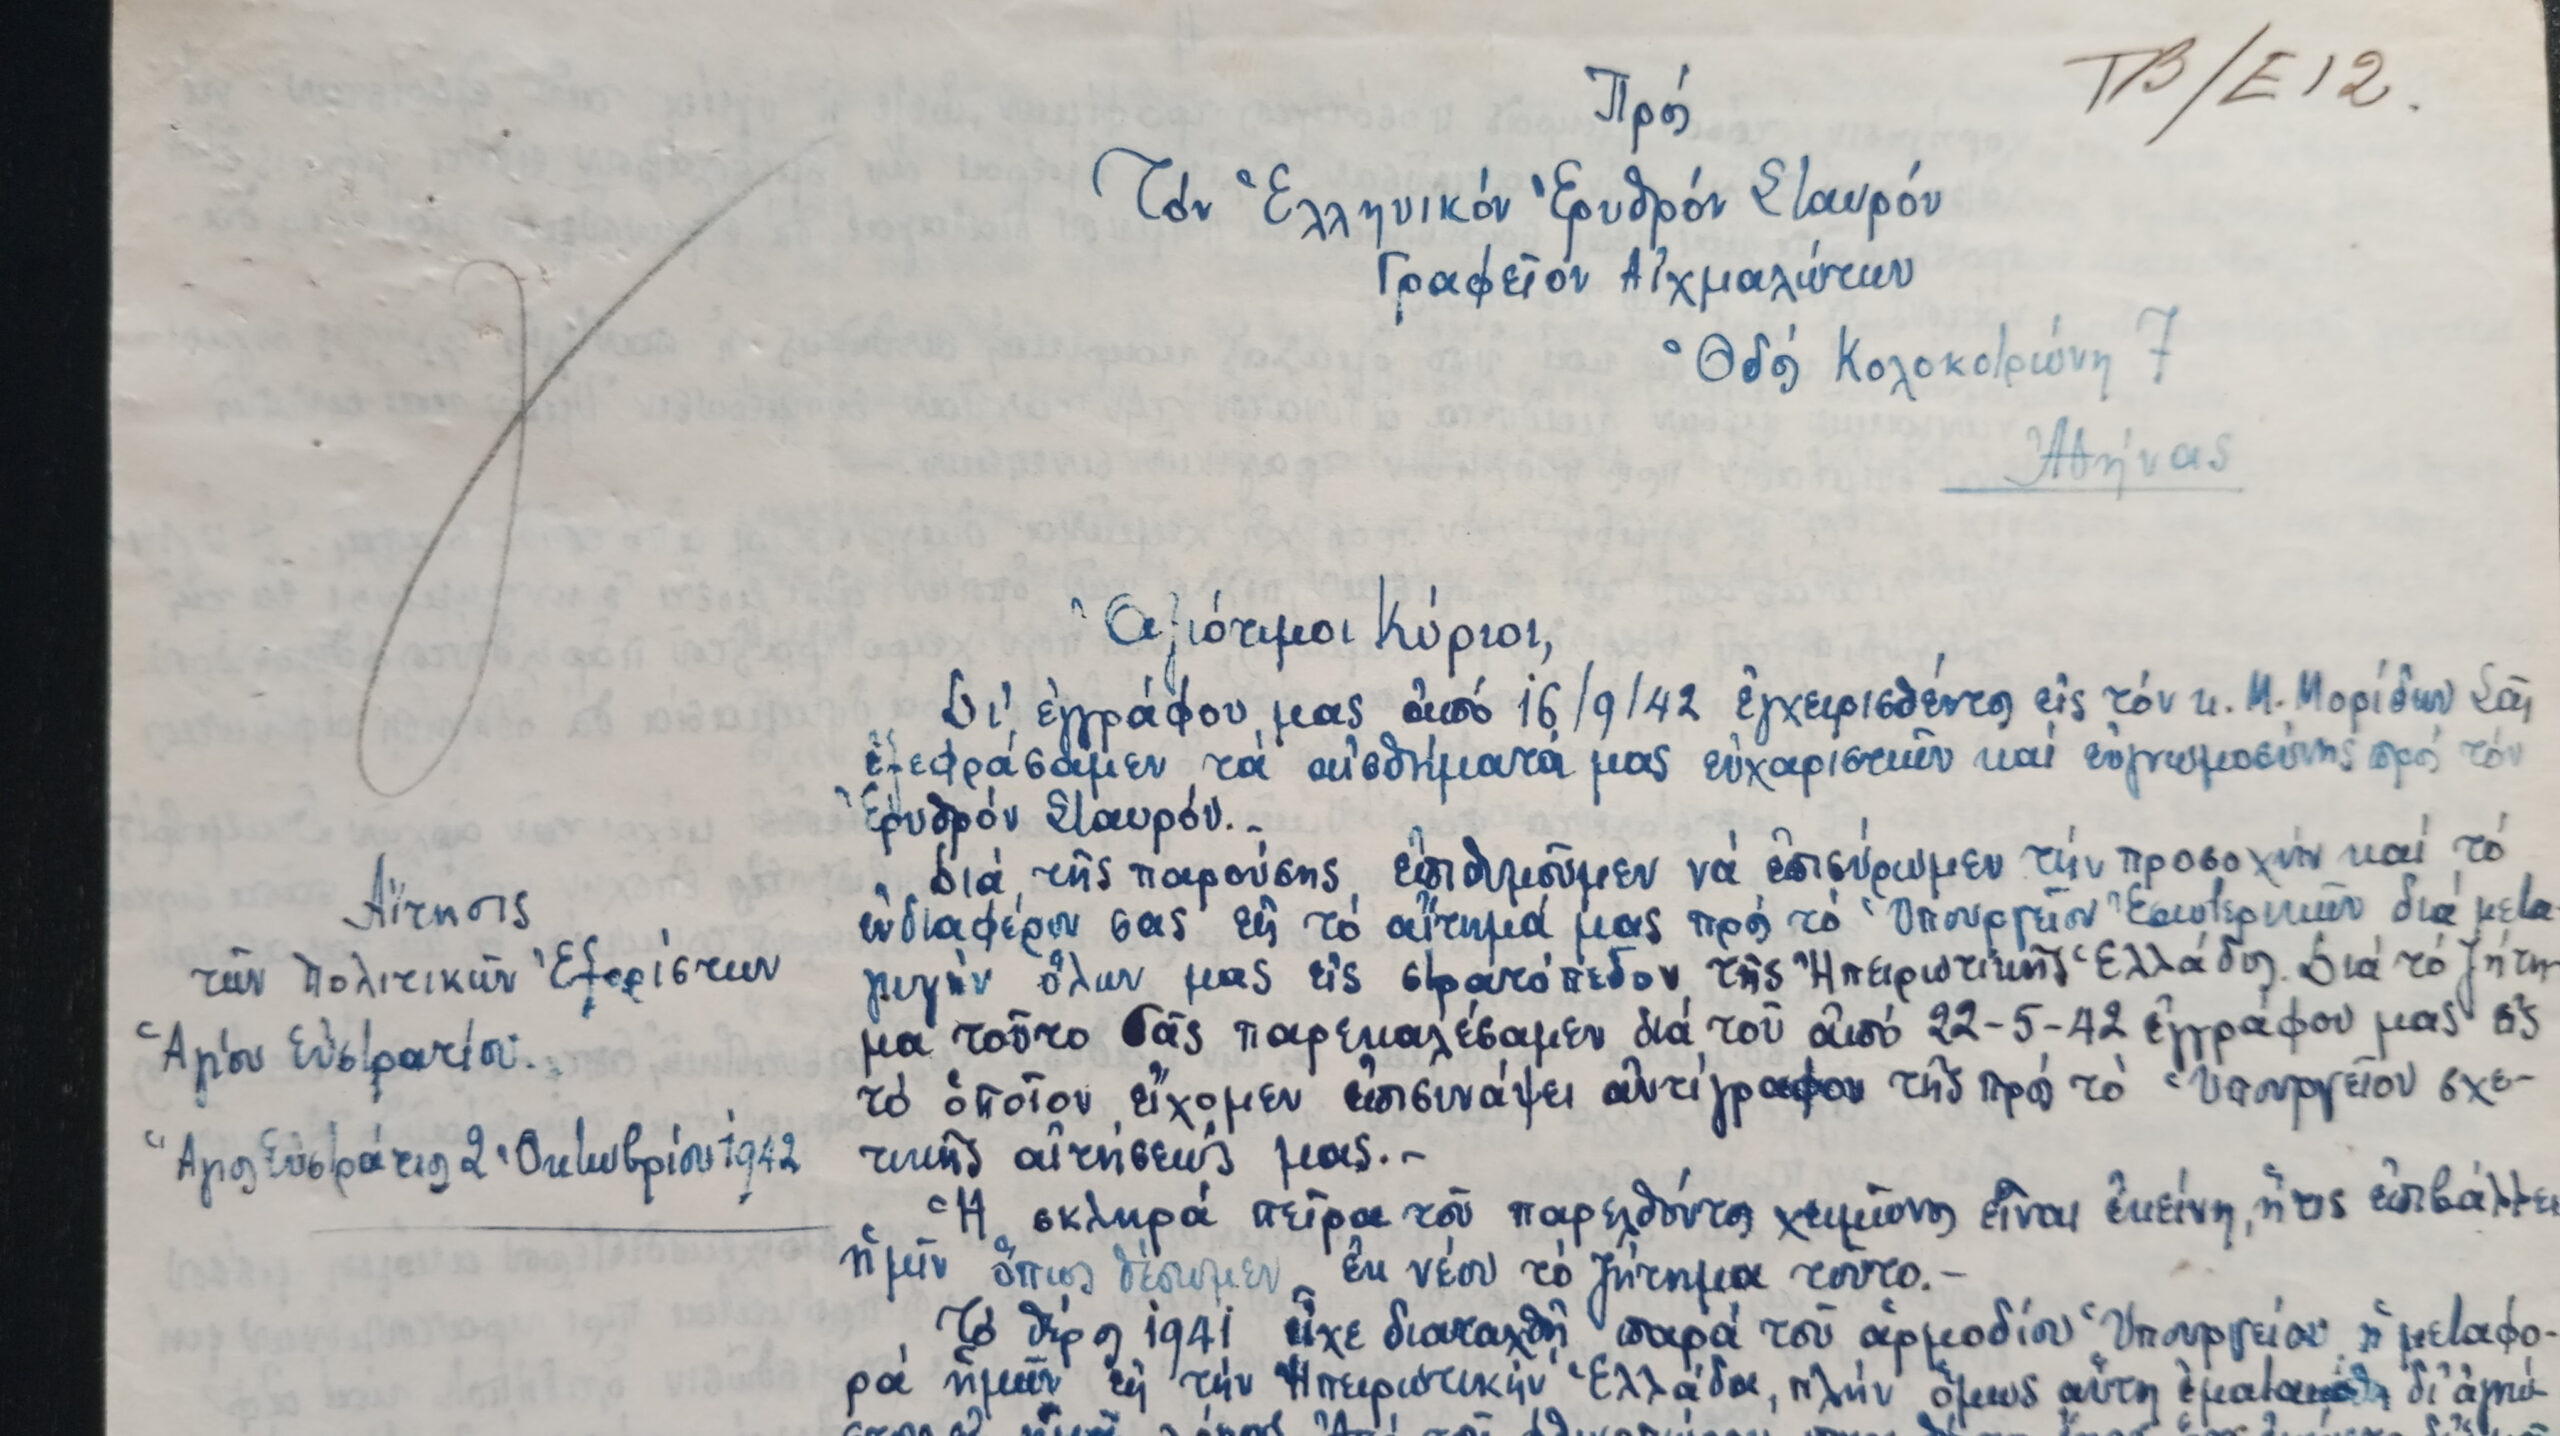 ΤΒ/Ε12.
Πρός
Τόν Ἑλληνικόν Ἐρυθρόν Σταυρόν
Γραφεῖον Αἰχμαλώτων
Ὁδός Κολοκοτρώνη 7
Ἀθήνας
Ἀξιότιμοι Κύριοι,
Δι' ἐγγράφου μας ἀπό 16/9/42 ἐγχειρισθέντος εἰς τόν κ. Μ. Μορίδων Σᾶς
ἐξεφράσαμεν τά αἰσθήματά μας εὐχαριστιῶν καί εὐγνωμοσύνης πρός τόν
Ἐρυθρόν Σταυρόν.-
Διά τῆς παρούσης ἐπιθυμοῦμεν νά ἐπισύρωμεν τήν προσοχήν καί τό
ἐνδιαφέρον σας εἰς τό αἴτημά μας πρός τό Ὑπουργεῖον Ἐσωτερικῶν διά μετα-
γωγήν ὅλων μας εἰς στρατόπεδον τῆς Ἠπειρωτικῆς Ἑλλάδος. Διά τό ζήτη-
μα τοῦτο Σᾶς παρεκαλέσαμεν διά τοῦ ἀπό 22-5-42 ἐγγράφου μας εἰς
τό ὁποῖον εἴχομεν ἐπισυνάψει ἀντίγραφον τῆς πρός τό Ὑπουργεῖον σχε-
τικῆς αἰτήσεώς μας.-
Αἴτησις
τῶν Πολιτικῶν Ἐξορίστων
Ἁγίου Εὐστρατίου.
Ἅγιος Εὐστράτιος 2 Ὀκτωβρίου 1942
Ἡ σκληρά πεῖρα τοῦ παρελθόντος χειμῶνος εἶναι ἐκείνη, ἥτις ἐπιβάλλει
ἡμῖν ὅπως θέσωμεν ἐκ νέου τό ζήτημα τοῦτο.-
Τό θέρος 1941 εἶχε διαταχθῆ παρά τοῦ ἁρμοδίου Ὑπουργείου ἡ μεταφο-
ρά ἡμῶν εἰς τήν Ἠπειρωτικήν Ἑλλάδα, πλήν ὅμως αὕτη ἐματαιώθη δι' ἀγνώ-